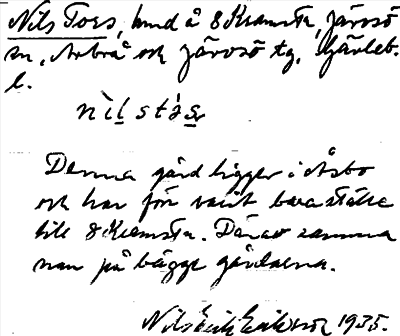 Nils Tors, hmd å 8 Kramsta, Järvsö
sn, Arbrå och Järvsö tg, Gävleb.
l.
nìlstó̀s̲
Denna gård ligger i Åsbo
och har för varit bara ställe
till 8 Kramsta. Därav samma
namn på bägge gårdarna.
Nils Erik Eriksson 1935.